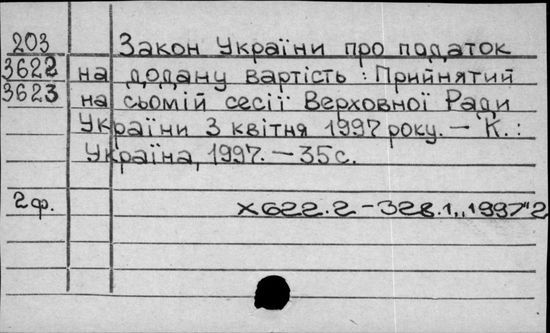 203 Закон України про податок
3622 на додану вартість : Прийнятий
3623 на сьомій сесії Верховної Ради
України 3 квітня 1997 року. — К. :
Україна, 1997. — 35 с.
2ф. Х622.2-328.1„1997"2